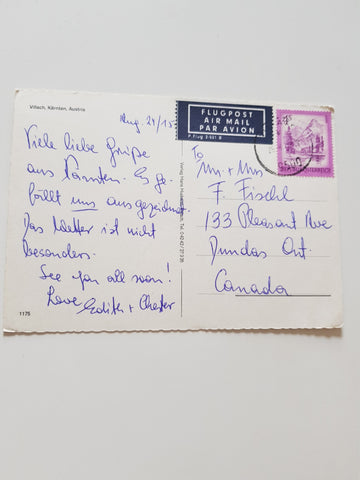 Villach, Kärnten, Austria
Aug. 21/15
FLUGPOST
AIR MAIL
PAR AVION
Viele liebe Grüße
aus Kärnten. Es ge-
fällt uns ausgezeichnet.
Das Wetter ist nicht
besonders.
See you all soon!
Love
Edith + Chester
To
Mr. + Mrs
F. Fischl
133 Pleasant Ave
Dundas Ont.
Canada
1175